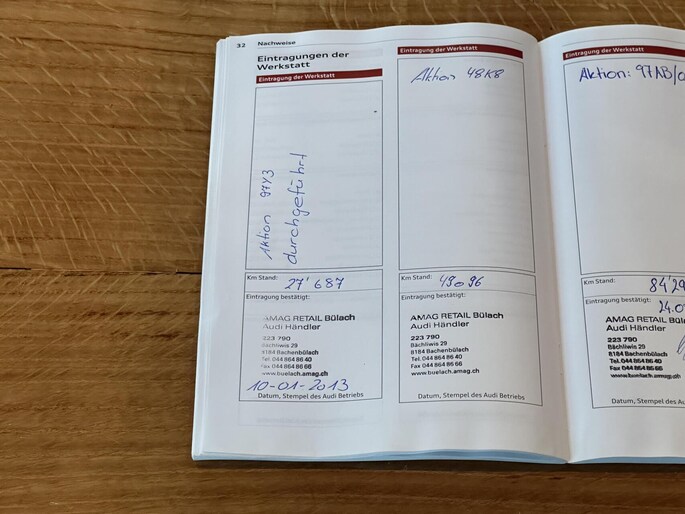 32 Nachweise
Eintragungen der
Werkstatt
Eintragung der Werkstatt
Aktion 97Y3
durchgeführt
Km Stand: 27'687
Eintragung bestätigt:
AMAG RETAIL Bülach
Audi Händler
223 790
Bächliwis 29
8184 Bachenbülach
Tel. 044 864 86 40
Fax 044 864 86 66
www.buelach.amag.ch
10-01-2013
Datum, Stempel des Audi Betriebs
Eintragung der Werkstatt
Aktion 48K8
Km Stand: 49096
Eintragung bestätigt:
AMAG RETAIL Bülach
Audi Händler
223 790
Bächliwis 29
8184 Bachenbülach
Tel. 044 864 86 40
Fax 044 864 86 66
www.buelach.amag.ch
Datum, Stempel des Audi Betriebs
Eintragung der Werkstatt
Aktion: 97AB/
Km Stand: 84'29
Eintragung bestätigt:
24.0
AMAG RETAIL Bülac
Audi Händler
223 790
Bächliwis 29
8184 Bachenbülach
Tel. 044 864 86 40
Fax 044 864 86 66
www.buelach.amag.ch
Datum, Stempel des Au